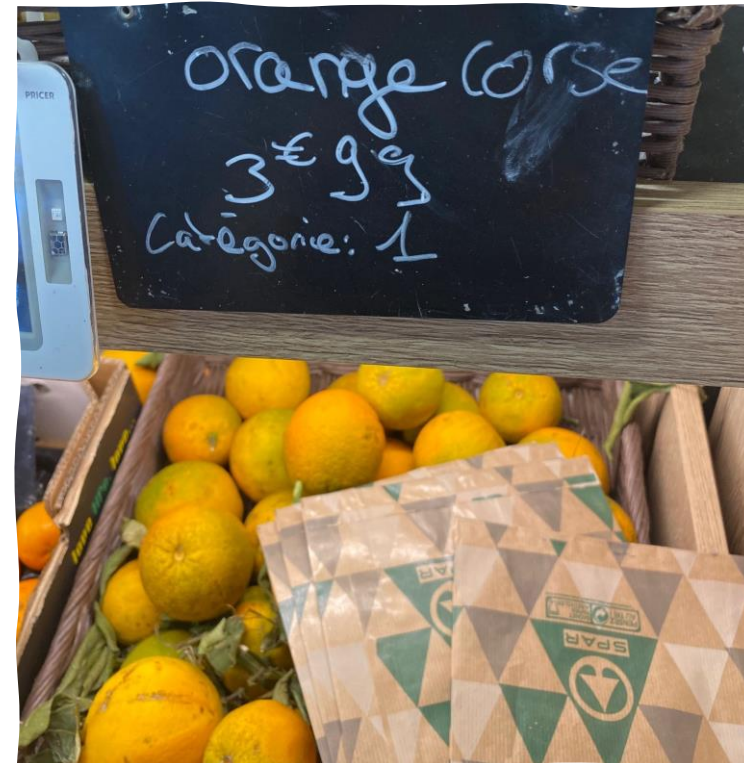 PRICER
orange corse
3€99
Catégorie: 1
SPAR
SPAR